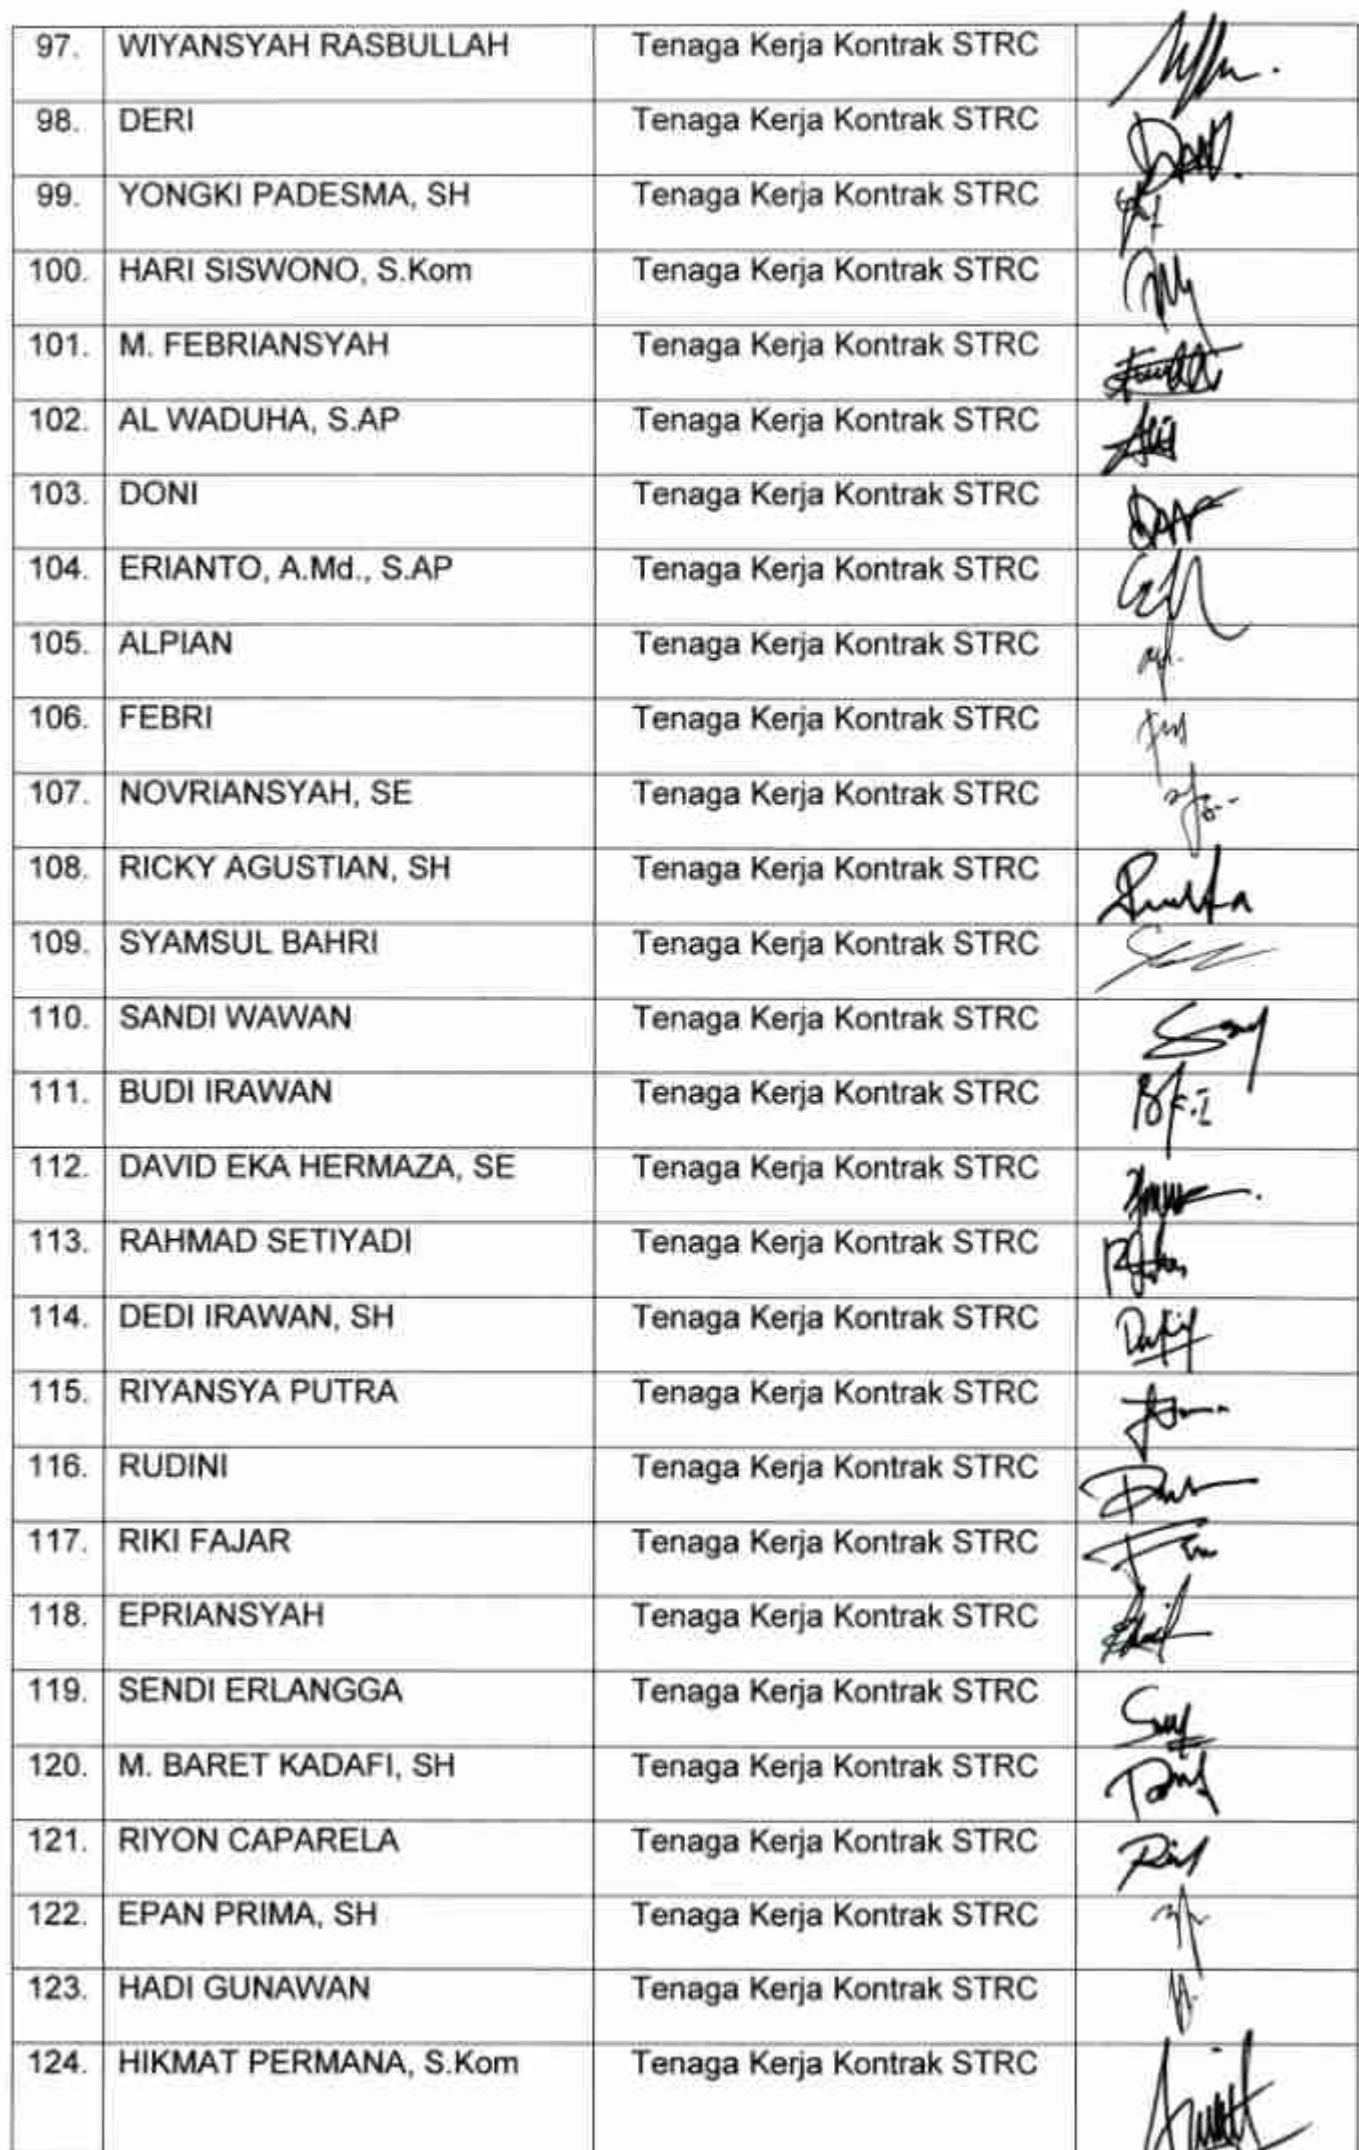 97. WIYANSYAH RASBULLAH Tenaga Kerja Kontrak STRC
98. DERI Tenaga Kerja Kontrak STRC
99. YONGKI PADESMA, SH Tenaga Kerja Kontrak STRC
100. HARI SISWONO, S.Kom Tenaga Kerja Kontrak STRC
101. M. FEBRIANSYAH Tenaga Kerja Kontrak STRC
102. AL WADUHA, S.AP Tenaga Kerja Kontrak STRC
103. DONI Tenaga Kerja Kontrak STRC
104. ERIANTO, A.Md., S.AP Tenaga Kerja Kontrak STRC
105. ALPIAN Tenaga Kerja Kontrak STRC
106. FEBRI Tenaga Kerja Kontrak STRC
107. NOVRIANSYAH, SE Tenaga Kerja Kontrak STRC
108. RICKY AGUSTIAN, SH Tenaga Kerja Kontrak STRC
109. SYAMSUL BAHRI Tenaga Kerja Kontrak STRC
110. SANDI WAWAN Tenaga Kerja Kontrak STRC
111. BUDI IRAWAN Tenaga Kerja Kontrak STRC
112. DAVID EKA HERMAZA, SE Tenaga Kerja Kontrak STRC
113. RAHMAD SETIYADI Tenaga Kerja Kontrak STRC
114. DEDI IRAWAN, SH Tenaga Kerja Kontrak STRC
115. RIYANSYA PUTRA Tenaga Kerja Kontrak STRC
116. RUDINI Tenaga Kerja Kontrak STRC
117. RIKI FAJAR Tenaga Kerja Kontrak STRC
118. EPRIANSYAH Tenaga Kerja Kontrak STRC
119. SENDI ERLANGGA Tenaga Kerja Kontrak STRC
120. M. BARET KADAFI, SH Tenaga Kerja Kontrak STRC
121. RIYON CAPARELA Tenaga Kerja Kontrak STRC
122. EPAN PRIMA, SH Tenaga Kerja Kontrak STRC
123. HADI GUNAWAN Tenaga Kerja Kontrak STRC
124. HIKMAT PERMANA, S.Kom Tenaga Kerja Kontrak STRC